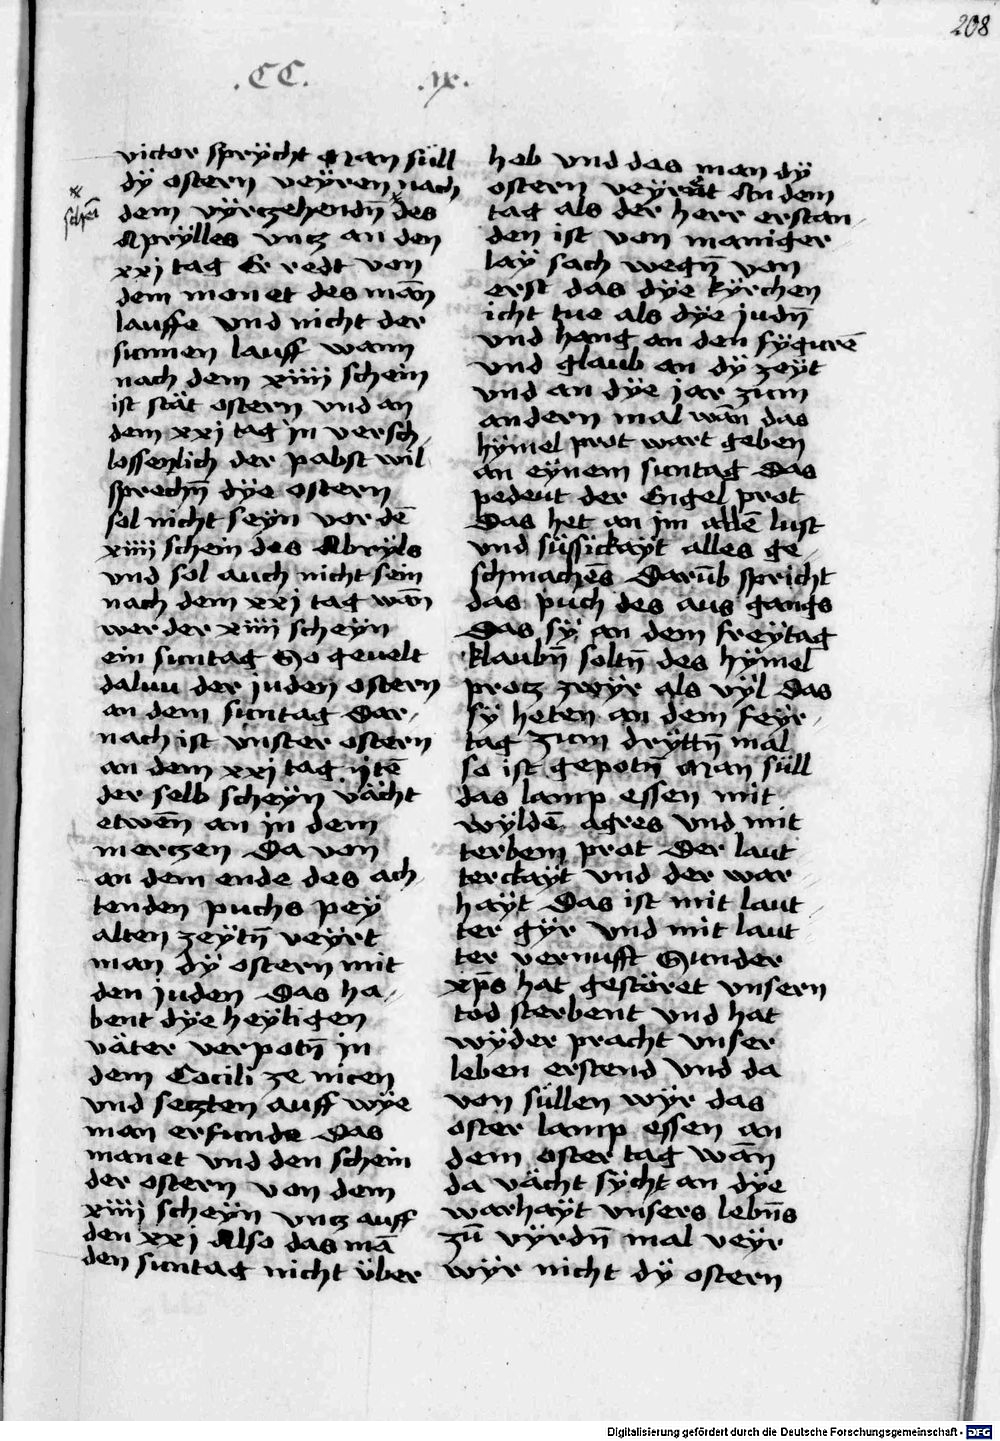 208
.CC. .ix.
victor sprÿcht Man süll
dÿ ostern veÿren nach
schei
dem vÿrzehendn̄ des
Aprÿlles vntz an den
xxj tag Er redt von
dem monet des mān
lauffe vnd nicht der
sunnen lauff wann
nach dem xiiij schein
ist stät ostern vnd an
dem xxj tag in versch
lossenlich der pabst wil
sprechn̄ dÿe ostern
sol nicht seÿn vor dē
xiiij schein des Abrÿls
vnd sol auch nicht sein
nach dem xxj tag wān
wer der xiiij scheÿn
ein suntag So geuelt
daluu der juden ostern
an dem suntag Dar
nach ist vnster ostern
an dem xxj tag
der selb scheÿn vächt
etwēn an in dem
mertzen Da von
an dem ende des ach
tenden puchs peÿ
alten zeÿtn̄ veÿrt
man dÿ ostern mit
den juden Das ha
bent dÿe heÿligen
väter verpotn̄ in
dem Cocili ze nicen
vnd setzten auff wÿe
man erfunde Das
manet vnd den schein
der ostern von dem
xiiij scheÿn vntz auff
den xxj Also das mā
den suntag nicht über
heb vnd das man dÿ
ostern veÿrat An dem
tag als der herr erstan
den ist von maniger
laÿ sach wegn̄ von
erst das dÿe kÿrchen
icht tue als dÿe judn̄
vnd hang an den fÿgurē
vnd glaub an dÿ zeÿt
vnd an dÿe jar zum
andern mal wān das
hÿmel prot wart geben
an eÿnem suntag Das
pedeut der Engel prot
Das het an im allē lust
vnd süssickaÿt alles ge
schmachēs Darūb spricht
das puch des aus gangs
Das sÿ an dem freÿtag
klaubn̄ soltn̄ des hÿmel
protz zwÿr als vÿl Das
sÿ heten an dem feÿr
tag zum drÿttn̄ mal
so ist gepotn̄ Man süll
das lamp essen mit
wÿldē agres vnd mit
terbem prot Der laut
terckaÿt vnd der war
haÿt Das ist mit laut
ter gÿr vnd mit laut
ter vernufft Sunder
xp̄s hat gestöret vnsern
tod sterbent vnd hat
wÿder pracht vnser
leben erstend vnd da
von süllen wÿr das
oster lamp essen an
dem oster tag wān
da vächt sÿcht an dÿe
warhaÿt vnsers lebn̄s
zū vÿrdn̄ mal veÿr
wÿr nicht dÿ ostern
Digitalisierung gefördert durch die Deutsche Forschungsgemeinschaft - DFG